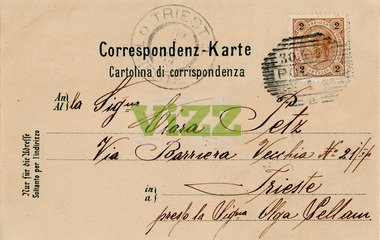 TRIEST
Correspondenz-Karte
Cartolina di corrispondenza
2 2
2 2
An
Al la Sigra
Clara Petz
Via Barriera Vecchia No 21/
in
a Trieste
presso la Signa Olga Pellam
Nur für die Adresse
Soltanto per l'indirizzo
VIZZ